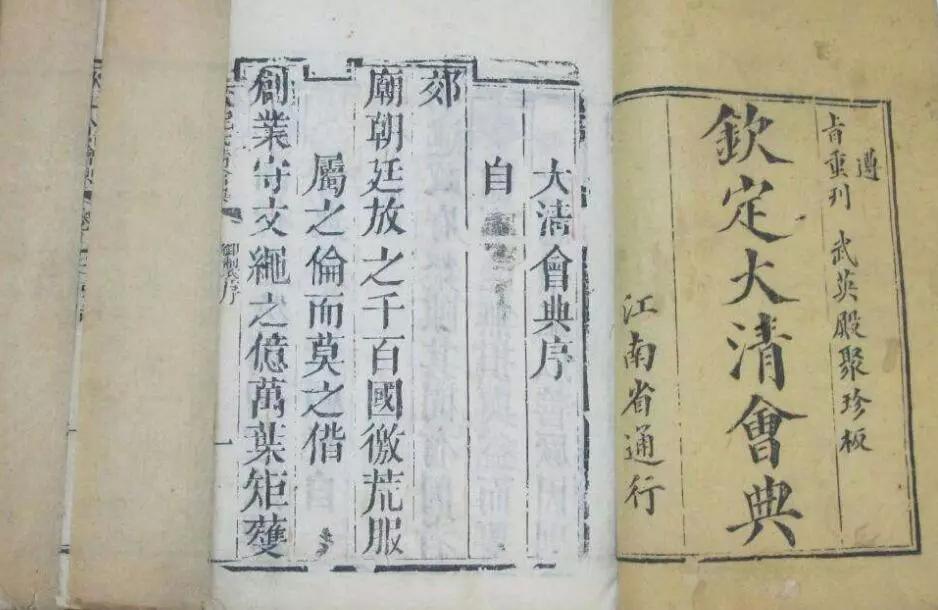 遵
旨重刊 武英殿聚珍板
欽定大清會典
江南省通行
大清會典序
自
郊
廟朝廷放之千百國徼荒服
屬之倫而莫之偕
創業守文繩之億萬葉矩蠖
御製序
一